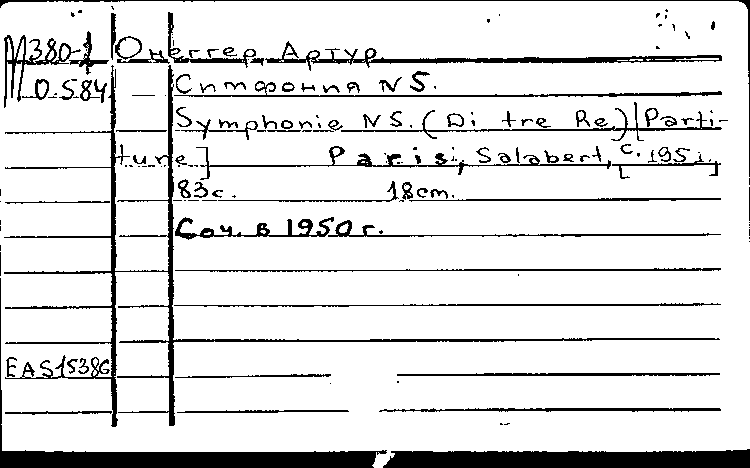 М380-1 Онеггер, Артур.
О.584 — Симфония N 5.
Symphonie N 5. (Di tre Re) [Parti-
ture] Paris, Salabert, c. [1951.]
83 с. 18 cm.
Соч. в 1950 г.
EAS15386